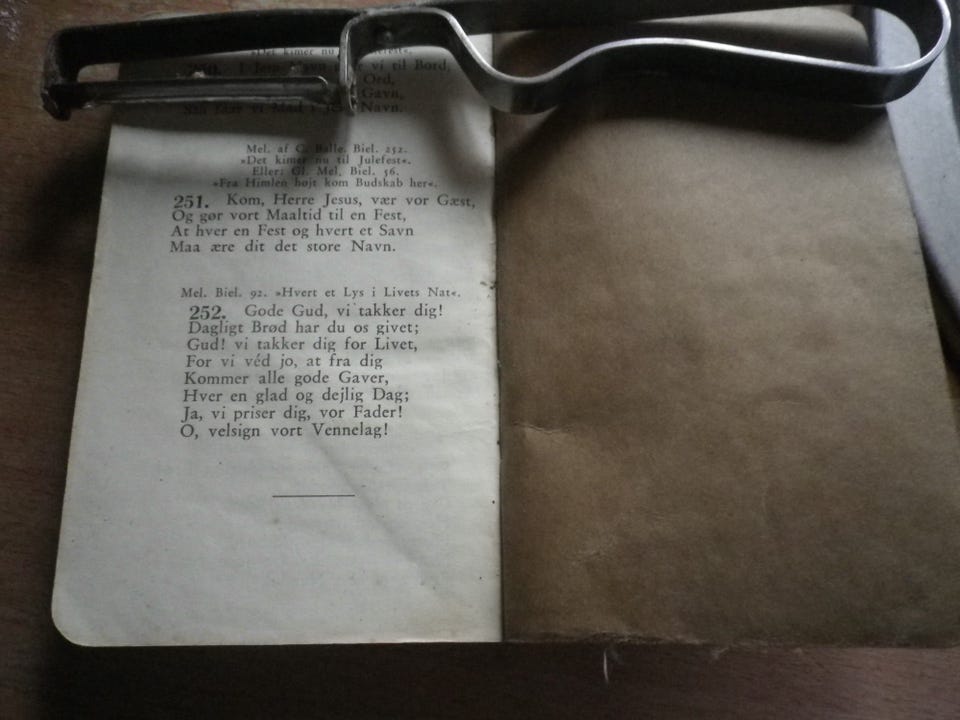 »Det kimer nu
250. I Jesu Navn vi til Bord,
Ord,
Gavn,
vi Mad i Jesu Navn.
Mel. af C. Balle. Biel. 252.
»Det kimer nu til Julefest«.
Eller: Gl. Mel. Biel. 56.
»Fra Himlen højt kom Budskab her«.
251. Kom, Herre Jesus, vær vor Gæst,
Og gør vort Maaltid til en Fest,
At hver en Fest og hvert et Savn
Maa ære dit det store Navn.
Mel. Biel. 92. »Hvert et Lys i Livets Nat«.
252. Gode Gud, vi takker dig!
Dagligt Brød har du os givet;
Gud! vi takker dig for Livet,
For vi véd jo, at fra dig
Kommer alle gode Gaver,
Hver en glad og dejlig Dag;
Ja, vi priser dig, vor Fader!
O, velsign vort Vennelag!